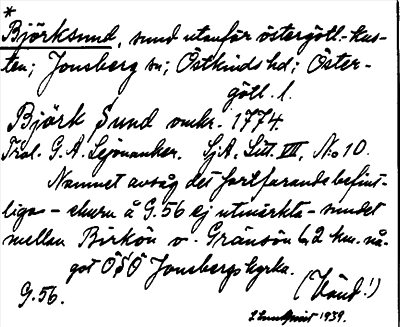 *
Björksund, sund utanför östergötl.-kus-
ten; Jonsberg sn; Östkinds hd; Öster-
götl. l.
Björk Sund omkr. 1774.
Trol. G. A. Lejonanker. SjA, Litt. VII, No 10.
Namnet avsåg det fortfarande befint-
liga – ehuru å G.56 ej utmärkta – sundet
mellan Birkön o. Gränsön 6,2 km. nå-
got ÖSÖ Jonsbergs kyrka.
G.56. (Vänd!)
1939.